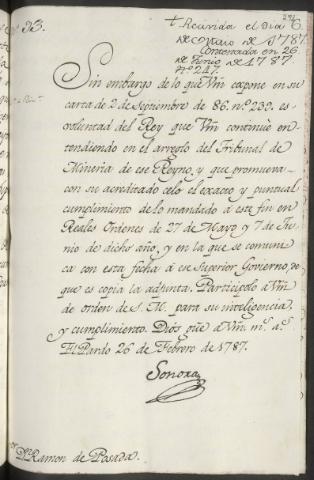 N. 33.
+ Recivida el Dia 6.
de Mayo de 1787.
Contextada en 26
de Junio de 1787.
N.º 247.
Sin embargo de lo que Vm̃ expone en su
carta de 2 de Septiembre de 86. n.º 239. es
voluntad del Rey que Vm̃ continúe en
tendiendo en el arreglo del Tribunal de
Mineria de ese Reyno, y que promueva
con su acreditado celo el exacto y puntual
cumplimiento de lo mandado á este fin en
Reales Ordenes de 27 de Mayo, y 7 de Ju
nio de dicho año, y en la que se comuni
ca con esta fecha á ese Superior Govierno, de
que es copia la adjunta. Participolo á Vm̃
de orden de S. M. para su inteligencia,
y cumplimiento. Dios gũe á Vm̃ m.s a.s
El Pardo 26 de Febrero de 1787.
Sonora
D.n Ramon de Posada.